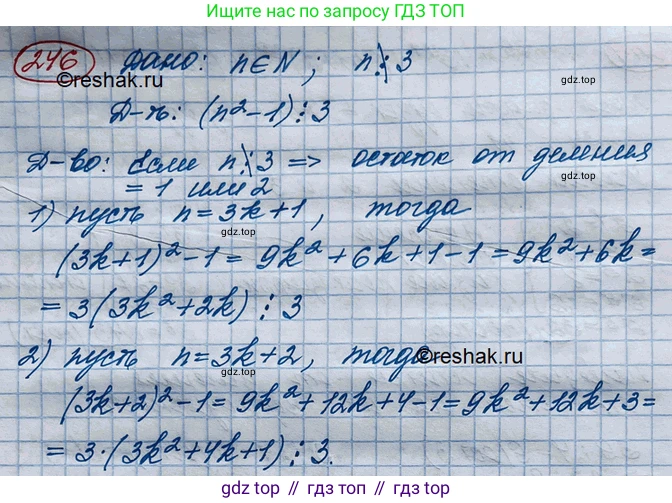 Ищите нас по запросу ГДЗ ТОП
246 Дано: n∈N; n⋮̸3
©reshak.ru
gdz.top
Д-ть: (n²-1)⋮3
gdz.top
Д-во: Если n⋮̸3 => остаток от деления
= 1 или 2
1) пусть n=3k+1, тогда
gdz.top
(3k+1)²-1= 9k²+6k+1-1=9k²+6k=
gdz.top
= 3(3k²+2k)⋮3
2) пусть n=3k+2, тогда
©reshak.ru
gdz.top
(3k+2)²-1=9k²+12k+4-1=9k²+12k+3=
gdz.top
= 3·(3k²+4k+1)⋮3.
gdz top // гдз топ // gdz top